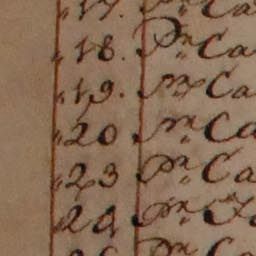 17. Pr Ca
18. Pr Ca
19. Pr Ca
20 Pr Ca
23 Pr Ca
24 Pr